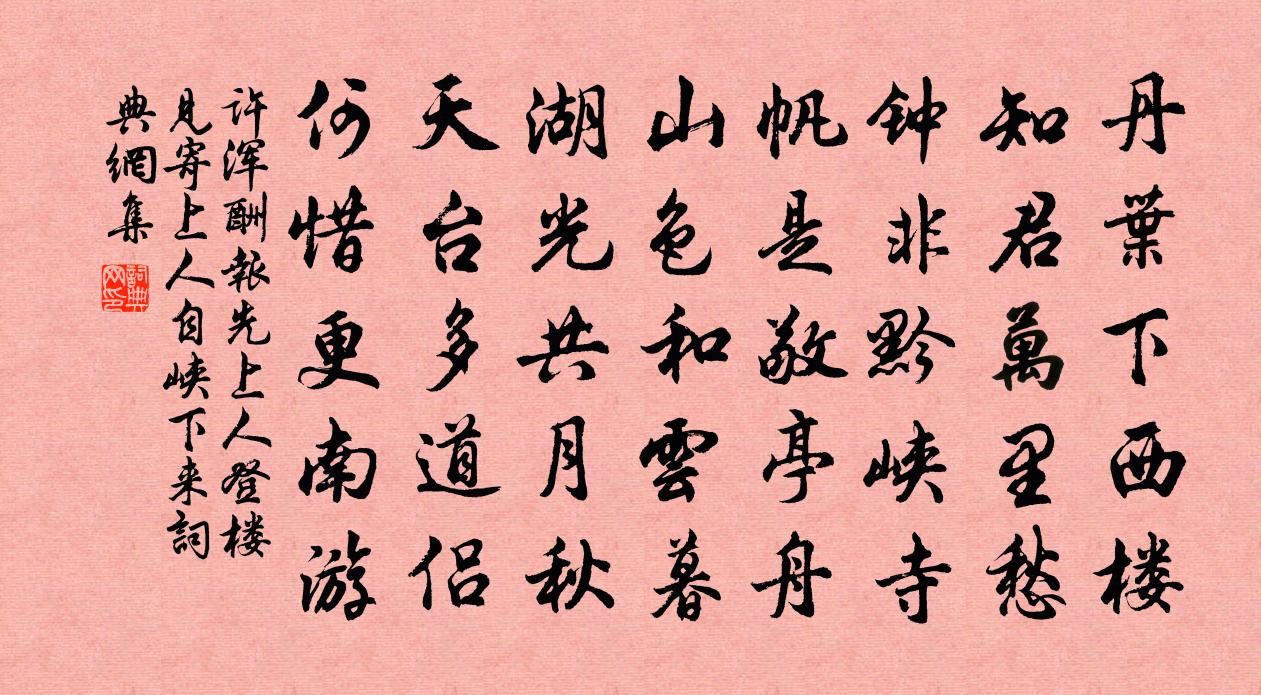 丹葉下西楼
知君萬里愁
钟非黔峡寺
帆是敬亭舟
山色和雲暮
湖光共月秋
天台多道侣
何惜更南游
许浑酬報先上人登楼
見寄上人自峡下来詞
典網集
詞典
网印